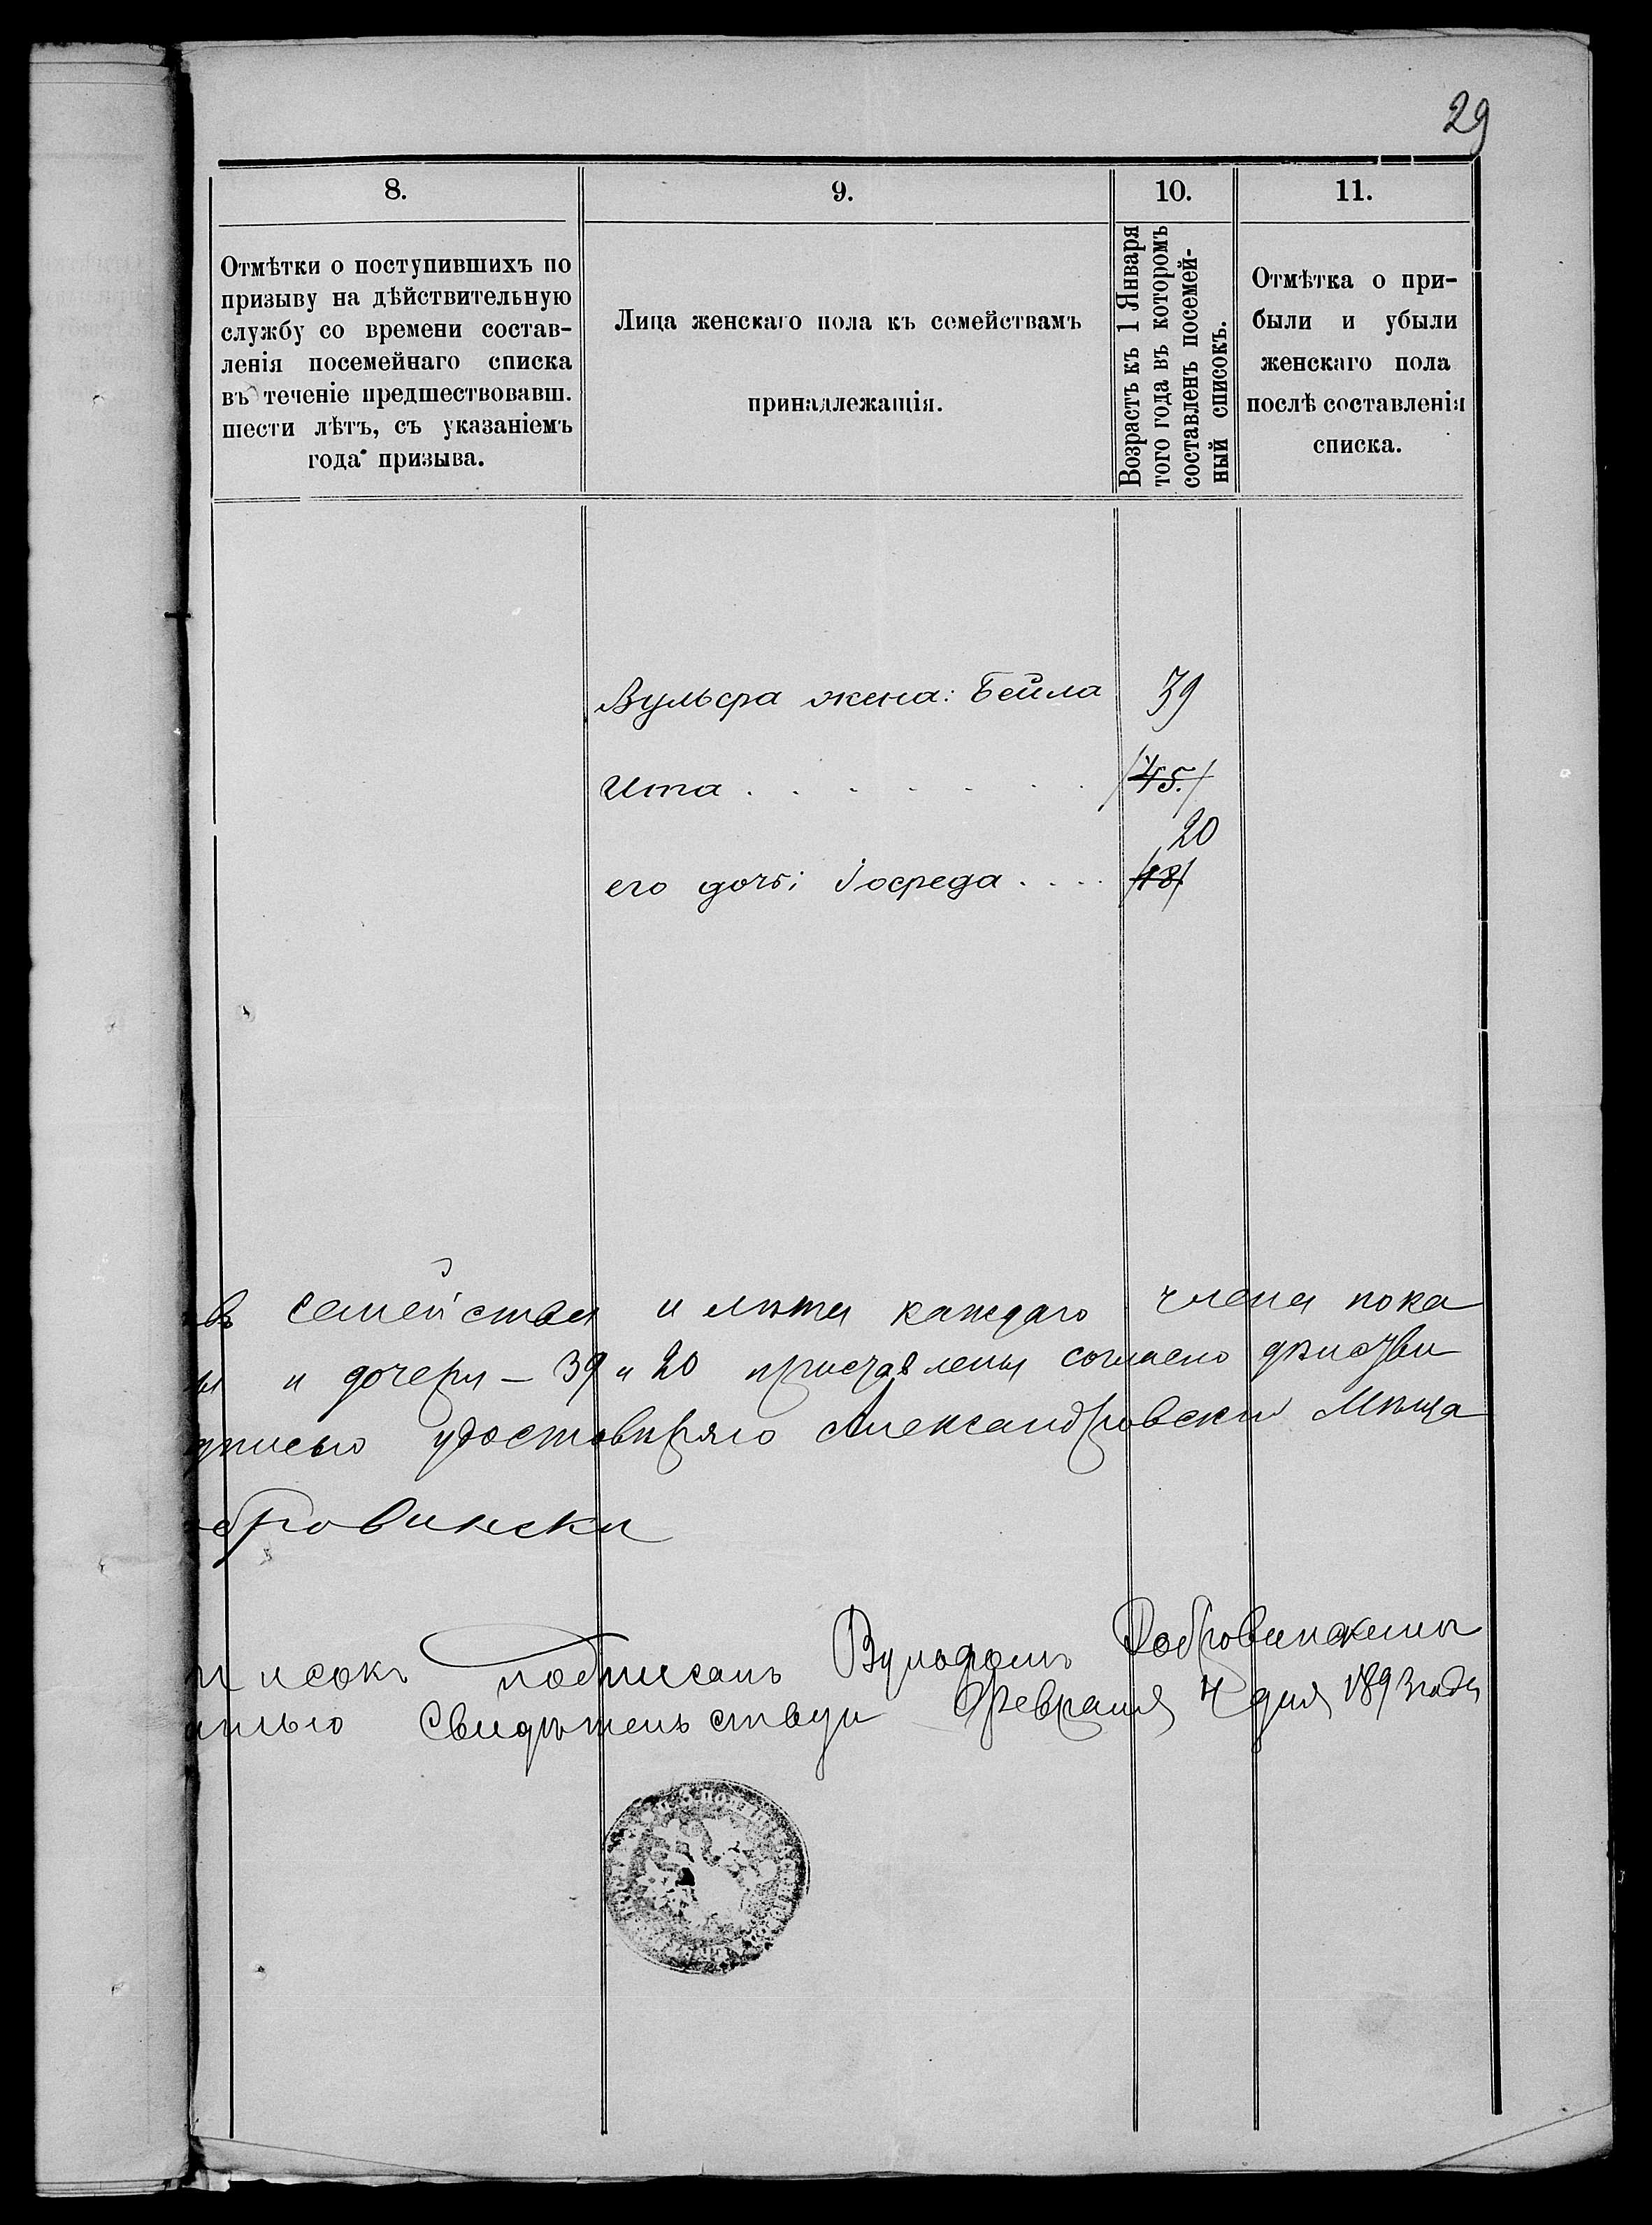 29
8.
9.
10.
11.
Отмѣтки о поступившихъ по
призыву на дѣйствительную
службу со времени состав-
ленія посемейнаго списка
въ теченіе предшествовавш.
шести лѣтъ, съ указаніемъ
года призыва.
Лица женскаго пола къ семействамъ
принадлежащія.
Возрастъ къ 1 Января
того года въ которомъ
составленъ посемей-
ный списокъ.
Отмѣтка о при-
были и убыли
женскаго пола
послѣ составленія
списка.
Вульфа жена: Бейла 39
Ита . . . . . . . /45./
20
его дочь: Іофреда . . . . /18/
въ семействѣ и лѣта каждаго члена пока
и дочери – 39 и 20 согласно
удостовѣряю Александровскій Мѣща
обровински
писокъ подписанъ Вульфомъ Добровинскимъ
Свидѣтельствую Февраля 4 дня 1893 года